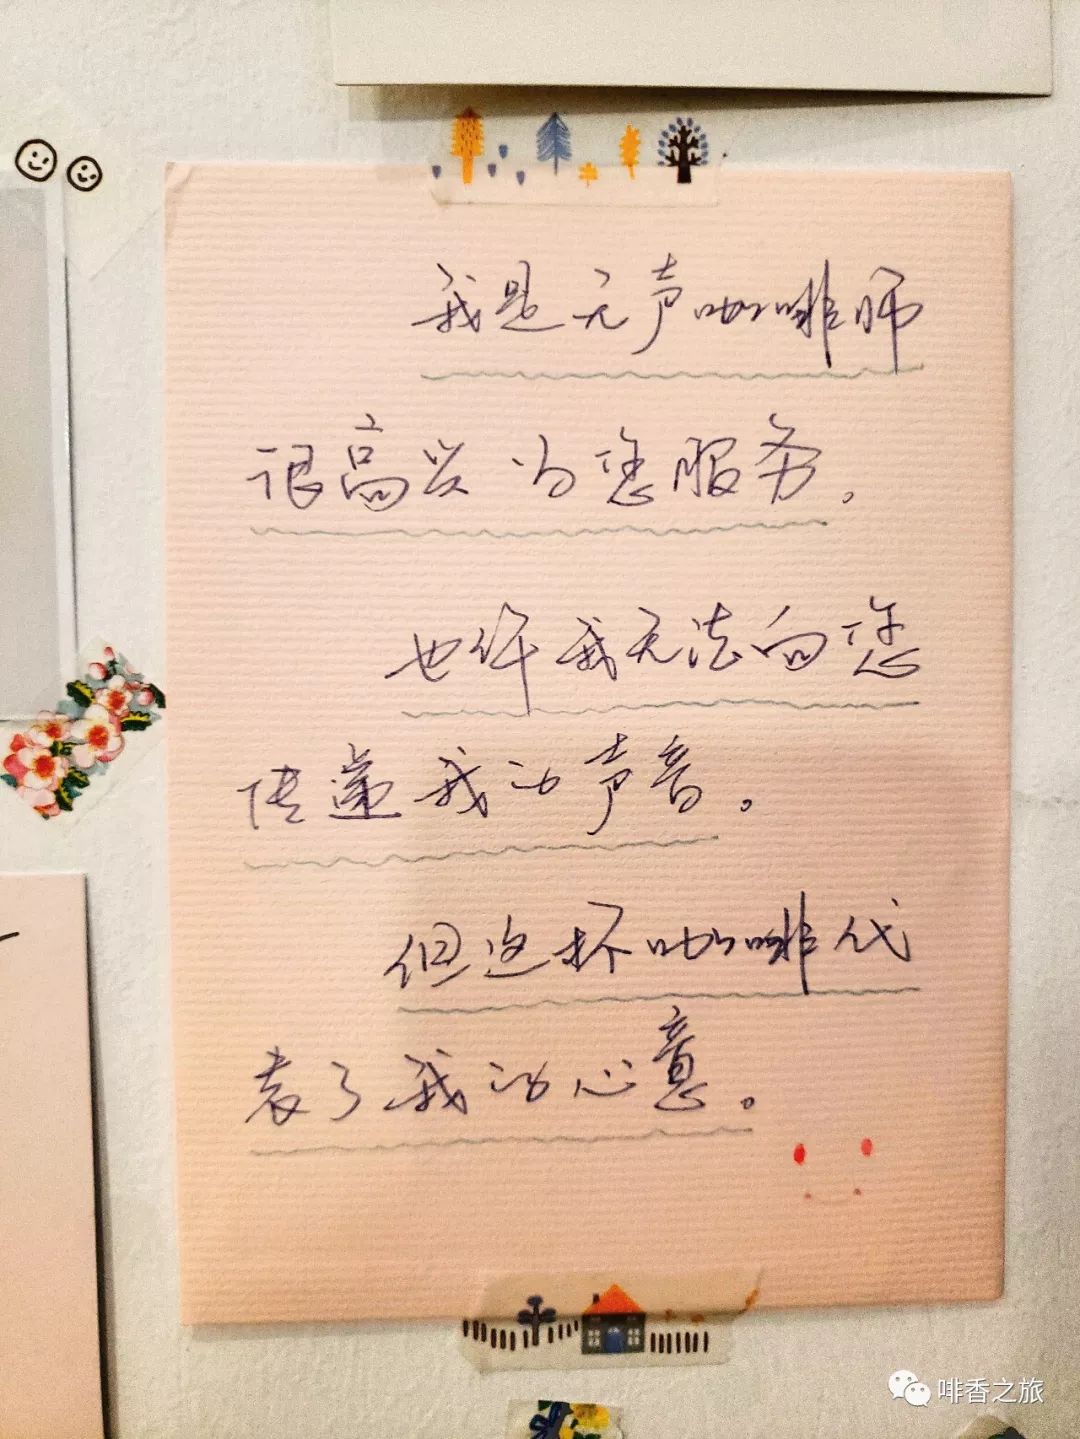 我是无声咖啡师
很高兴为您服务。
也许我无法向您
传递我的声音。
但这杯咖啡代
表了我的心意。
啡香之旅